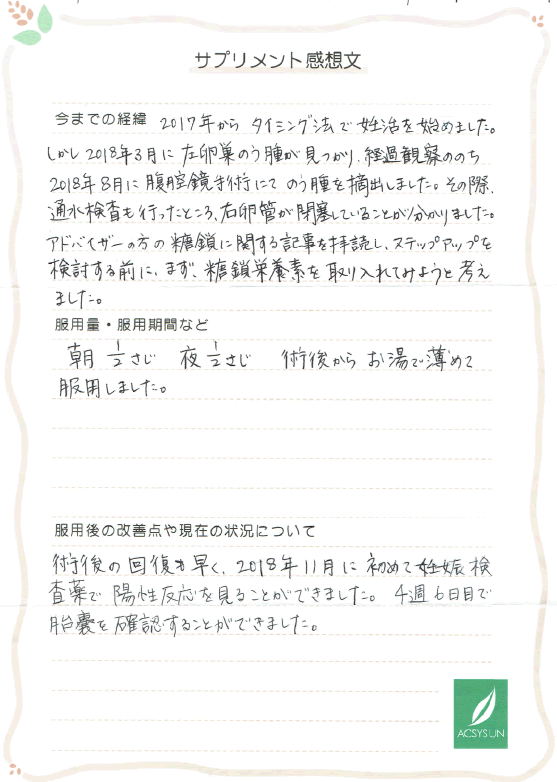 サプリメント感想文
今までの経緯 2017年から タイミング法で 妊活を始めました。
しかし 2018年3月に 左卵巣のう腫が見つかり、経過観察ののち
2018年8月に 腹腔鏡手術にて のう腫を摘出しました。その際、
通水検査も行ったところ、右卵管が閉塞していることが分かりました。
アドバイザーの方の 糖鎖に関する記事を拝読し、ステップアップを
検討する前に、まず、糖鎖栄養素を 取り入れてみようと 考え
ました。
服用量・服用期間など
朝 1/2さじ 夜 1/2さじ 術後から お湯で薄めて
服用しました。
服用後の改善点や現在の状況について
術後の 回復も 早く、2018年11月に 初めて 妊娠検
査薬で 陽性反応を 見ることができました。 4週6日目で
胎嚢を 確認することができました。
ACSYSUN